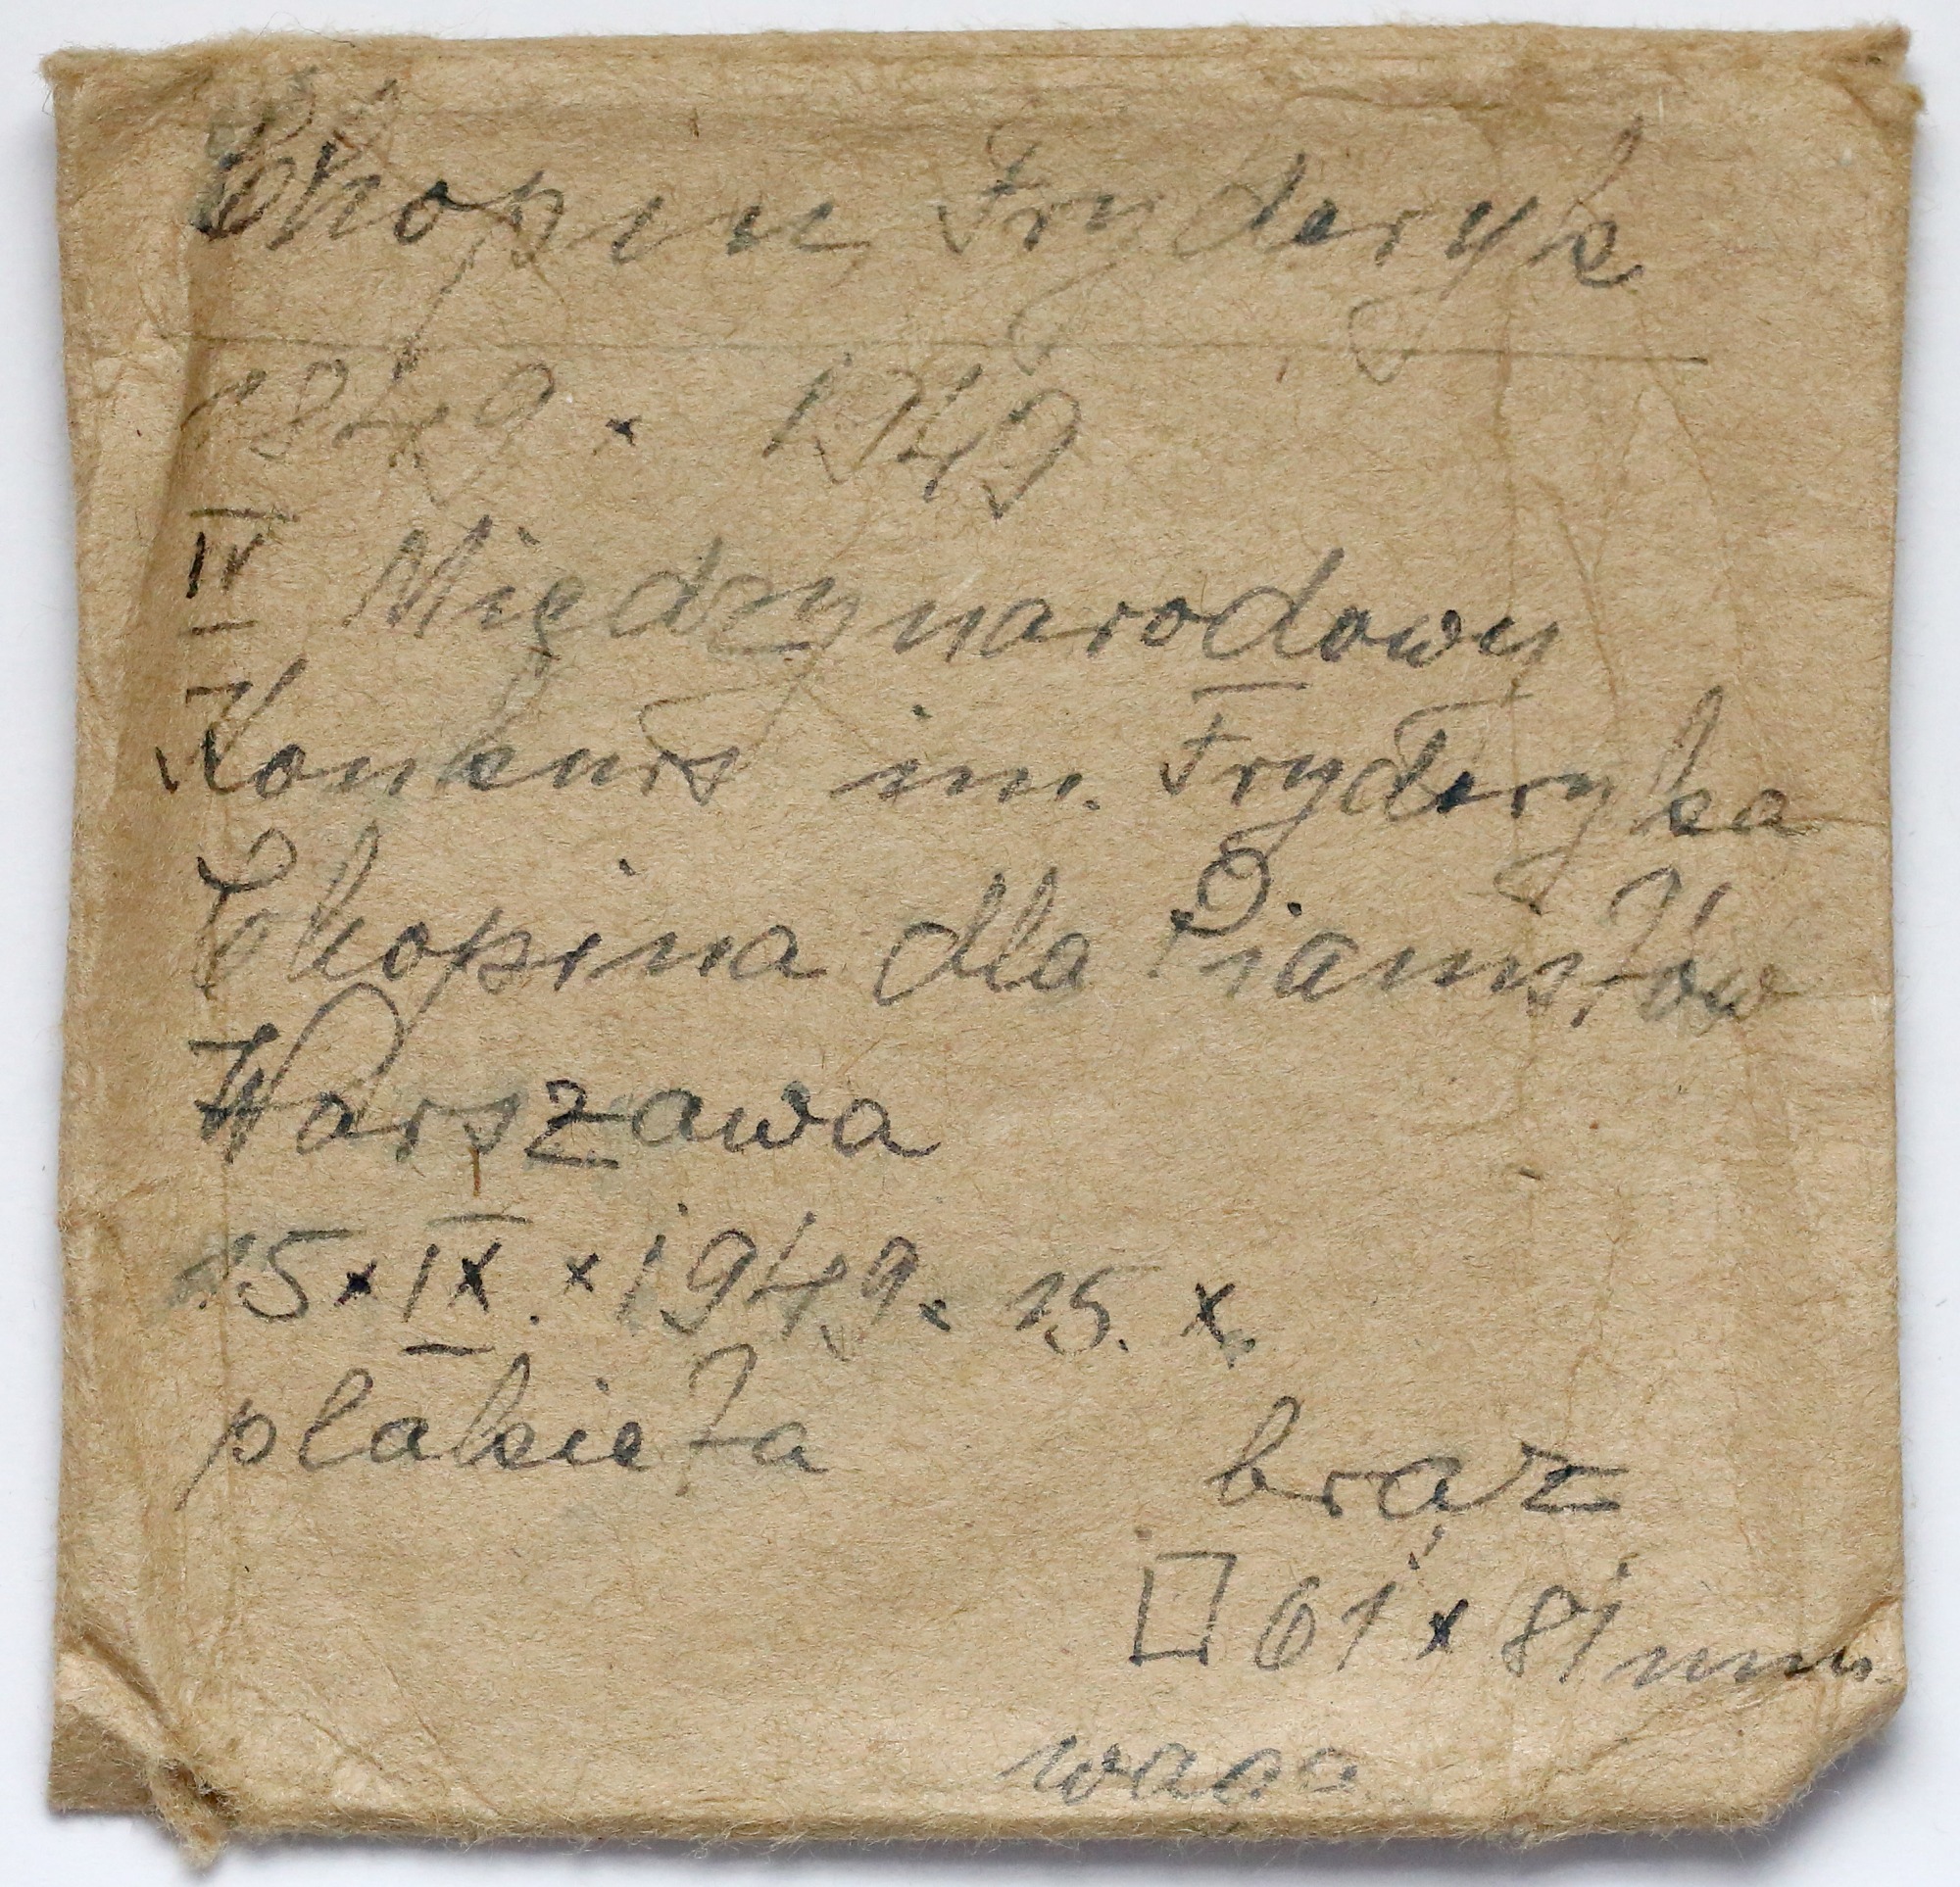 Chopin Fryderyk
1849 × 1949
IV Międzynarodowy
Konkurs im. Fryderyka
Chopina dla Pianistów
Warszawa
15 × IX. × 1949. 15. X.
plakieta
brąz
□ 61 × 81 mm.
waga